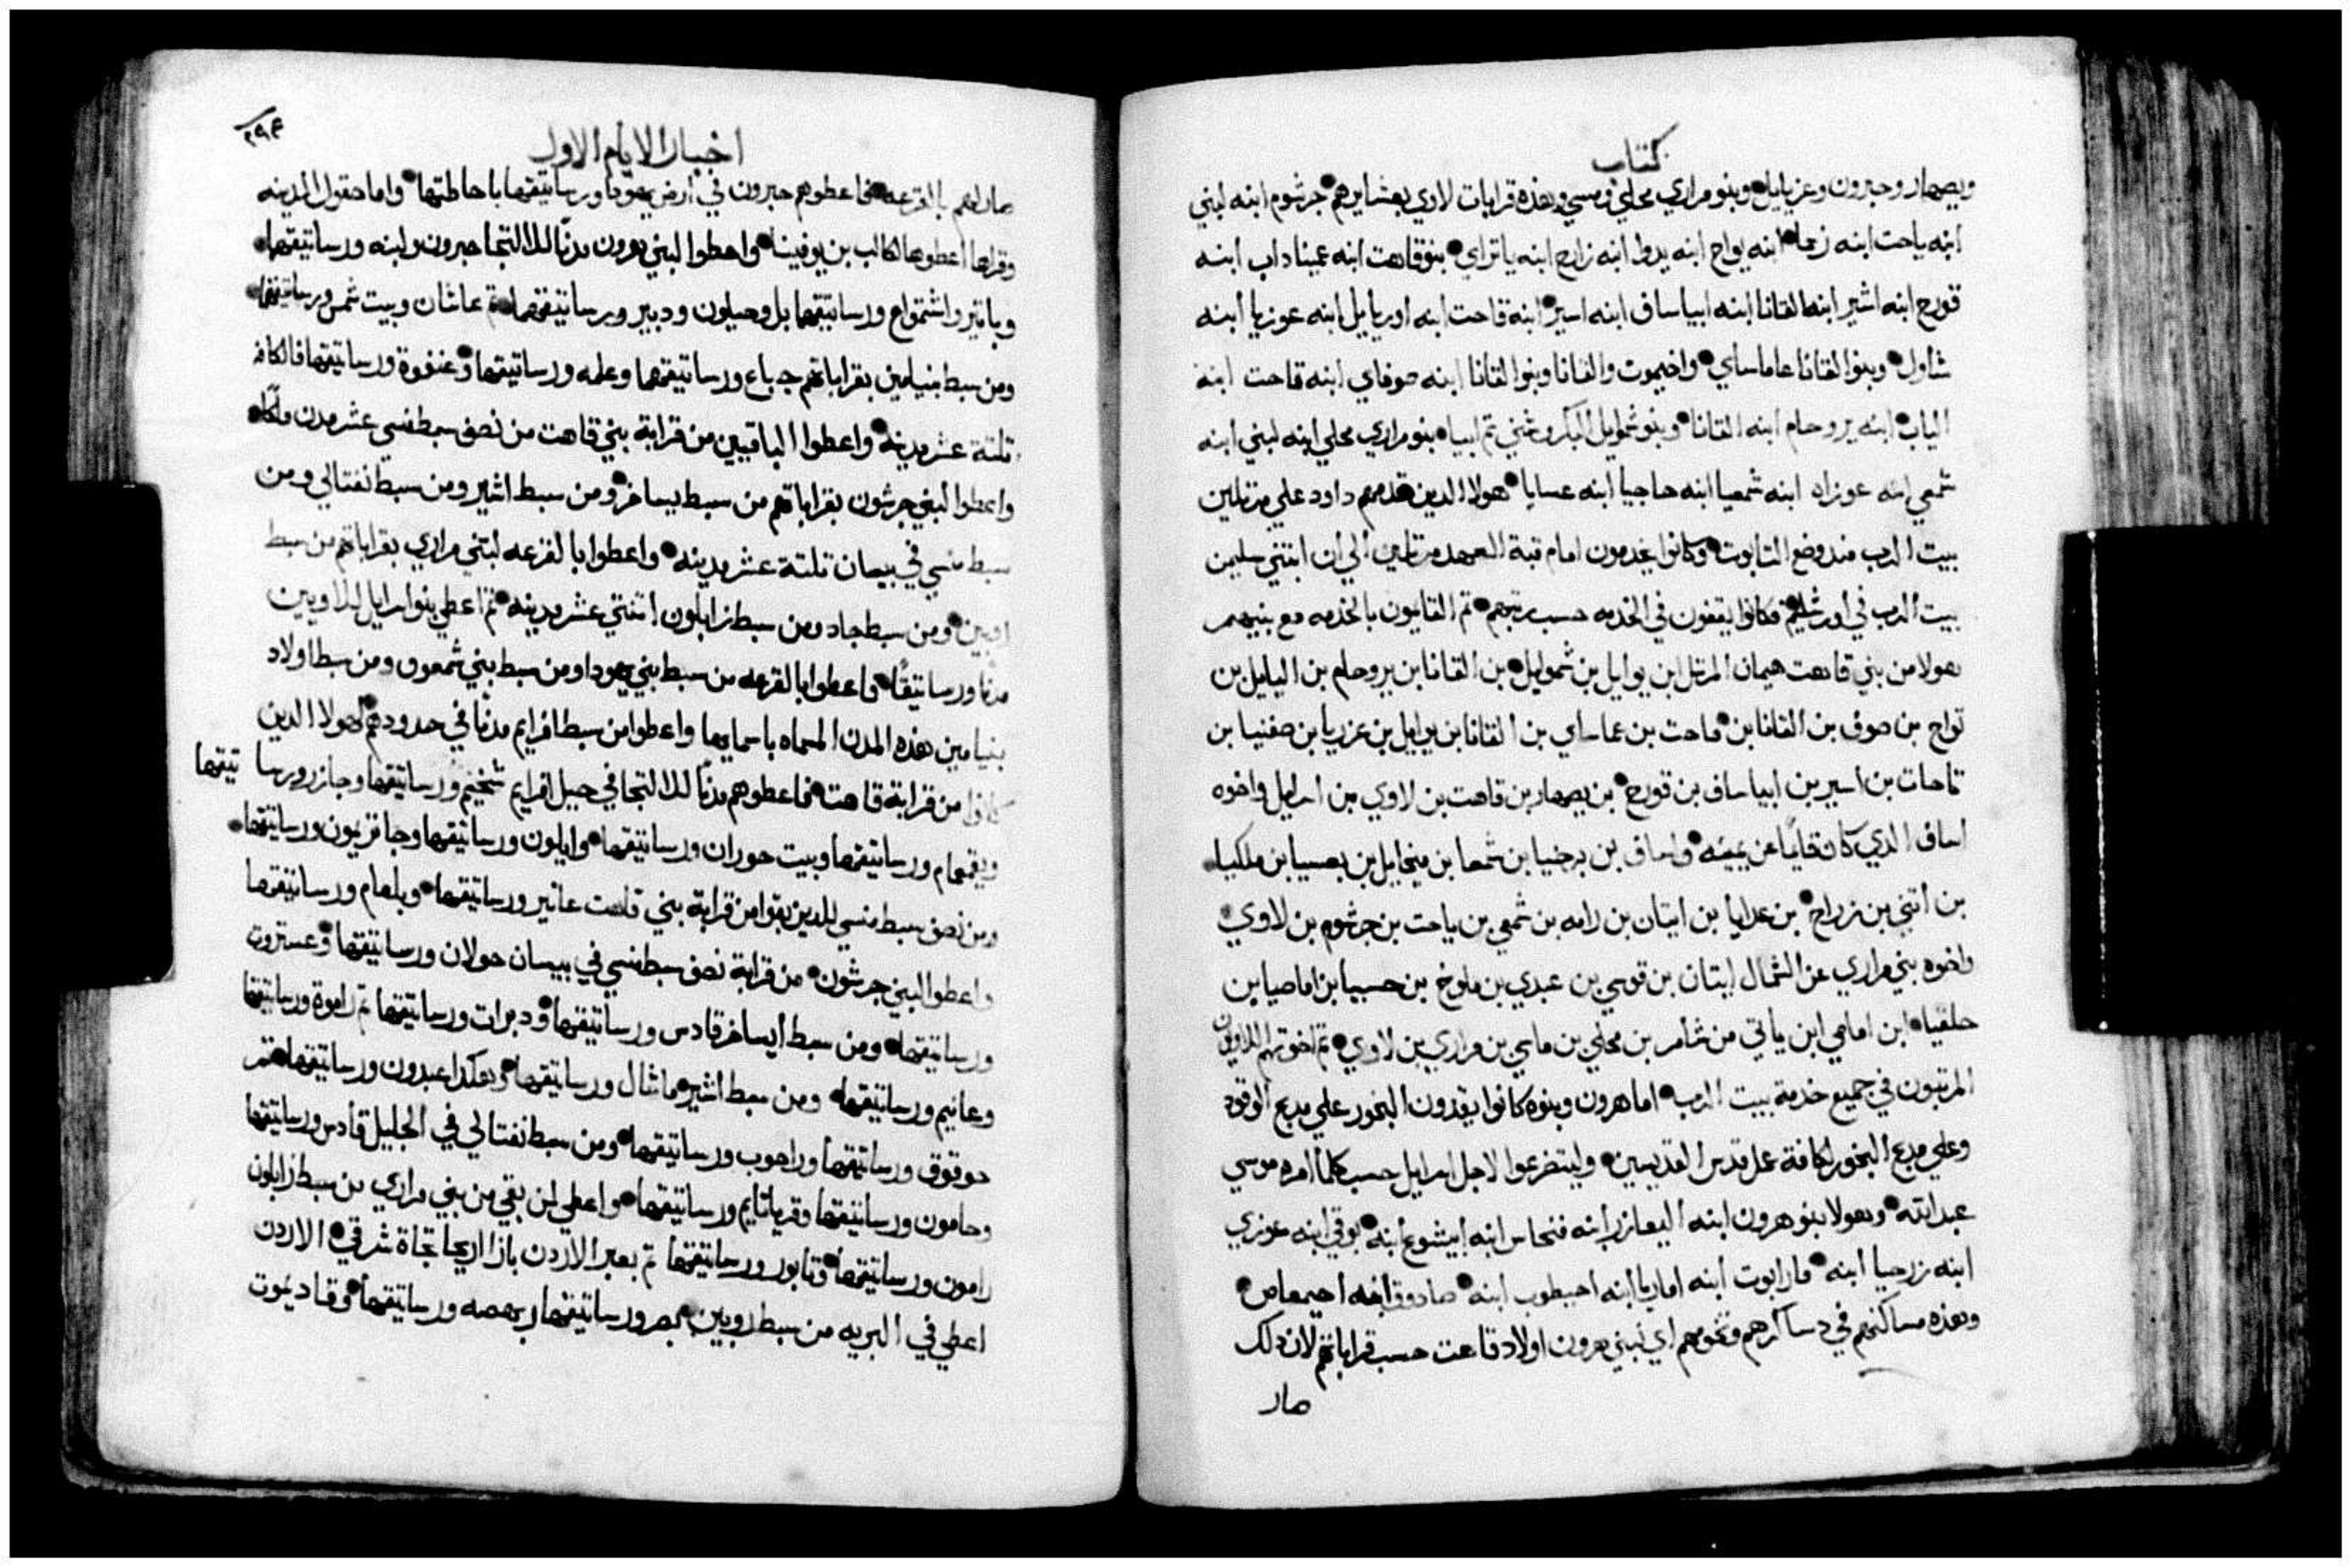 كتاب
ويصهار وحبرون وعزيايل وبنو مراري محلي ومسي وهذه قرابات لاوي بعشايرهم جرشوم ابنه لبني
ابنه ياحت ابنه زما ابنه يواح ابنه يدوا ابنه زارح ابنه ياتراي بنو قاهت ابنه عميناداب ابنه
قورح ابنه اشير ابنه القانا ابنه ابياساف ابنه اسير ابنه قاحت ابنه اوريايل ابنه عوزيا ابنه
شاول وبنوا القانا عاماساي واخيموت والقانا وبنوا القانا ابنه صوفاي ابنه قاحت ابنه
الياب ابنه يروحام ابنه القانا وبنو شمويل البكر وشني تم ابيا بنو مراري محلي ابنه لبني ابنه
شمعي ابنه عوزاه ابنه شمعيا ابنه حاجيا ابنه عسايا هولا الدين قدمهم داود علي مرتلين
بيت الرب مند وضع التابوت وكانوا يخدمون امام قبة العهد مرتلين الي ان ابتني سليمن
بيت الرب في اورشليم فكانوا يقفون في الخدمه حسب رتبهم تم القايمون بالخدمه مع بنيهم
هولا من بني قاهت هيمان المرتل ابن يوايل بن شمويل بن القانا بن يروحام بن اليايل بن
تواح بن صوف بن القانا بن قاحت بن عماساي بن القانا بن يوايل بن عزريا بن صفنيا بن
تاحات بن اسير بن ابياساف بن قورح بن يصهار بن قاهت بن لاوي بن اسرايل واخوه
اساف الدي كان قايما عن يمينه واساف بن برخيا بن شمعا بن ميخايل بن بعسيا بن ملكيا
بن اتني بن زراح بن عدايا بن ايتان بن رامه بن شمعي بن ياحت بن جرشوم بن لاوي
واخوه بني مراري عن الشمال ايتان بن قوسي بن عبدي بن ملوخ بن حسبيا بن اماصيا بن
حلقيا ابن امامي ابن ياتي من شامر بن محلي بن ماسي بن مراري بن لاوي تم اخوتهم اللاويون
المرتبون في جميع خدمة بيت الرب اما هرون وبنوه كانوا يقدون البخور علي مدبح الوقود
وعلي مدبح البخور لكافة عمل قدس القديسين وليتضرعوا لاجل اسرايل حسب كلما امره موسي
عبد الله وهولا بنو هرون ابنه اليعازر ابنه فنحاس ابنه ابيشوع ابنه بوقي ابنه عوزي
ابنه زرحيا ابنه مارايوت ابنه اماريا ابنه احيطوب ابنه صادوق ابنه احيمعاص
وهذه مساكنهم في دساكرهم وتخومهم اي لبني هرون اولاد قاهت حسب قراباتهم لان دلك
صار
٢٩٤
اخبار الايام الاول
صار لهم بالقرعه فاعطوهم حبرون في ارض يهودا ورساتيقها باحاطتها واما حقول المدينه
وقراها اعطوها لكالب بن يوفينا واعطوا لبني هرون مدنا للالتجا حبرون ولبنه ورساتيقها
وياتير واشتمواع ورساتيقها بل وحيلون ودبير ورساتيقهما تم عاشان وبيت شمس ورساتيقها
ومن سبط بنيامين بقراباتهم جباع ورساتيقها وعلمه ورساتيقها وعنفوة ورساتيقها فالكافه
تلتة عشر مدينه واعطوا الباقيين من قرابة بني قاهت من نصف سبط منسي عشر مدن ملكا
واعطوا لبني جرشون بقراباتهم من سبط يساخر ومن سبط اشير ومن سبط نفتالي ومن
سبط منسي في بيسان تلتة عشر مدينه واعطوا بالقرعه لبني مراري بقراباتهم من سبط
روبين ومن سبط جاد ومن سبط زابلون اتنتي عشر مدينه تم اعطي بنوا سرايل للاويين
مدنا ورساتيقا واعطوا بالقرعه من سبط بني يهودا ومن سبط بني شمعون ومن سبط اولاد
بنيامين هذه المدن المسماه باسمايها واعطوا من سبط افرايم مدنا في حدودهم لهولا الدين
كانوا من قرابة قاهت فاعطوهم مدنا للالتجا في جبل افرايم شخيم ورساتيقها وجازر ورساتيقها
ويقمعام ورساتيقها وبيت حوران ورساتيقها وايلون ورساتيقها وجاتريمون ورساتيقها
ومن نصف سبط منسي للدين بقوا من قرابة بني قاهت عانير ورساتيقها وبلعام ورساتيقها
واعطوا لبني جرشون من قرابة نصف سبط منسي في بيسان حولان ورساتيقها وعستروت
ورساتيقها ومن سبط ايساخر قادس ورساتيقها ودبرات ورساتيقها تم راموة ورساتيقها
وعانيم ورساتيقها ومن سبط اشير ماشال ورساتيقها وهكدا عبدون ورساتيقها تم
حوقوق ورساتيقها وراحوب ورساتيقها ومن سبط نفتالي في الجليل قادس ورساتيقها
وحامون ورساتيقها وقرياتايم ورساتيقها واعطي لمن بقي من بني مراري من سبط زابلون
رامون ورساتيقها وتابور ورساتيقها تم بعبر الاردن بازا اريحا تجاة شرقي الاردن
اعطي في البريه من سبط روبين بصر ورساتيقها ويهصه ورساتيقها وقاديموت